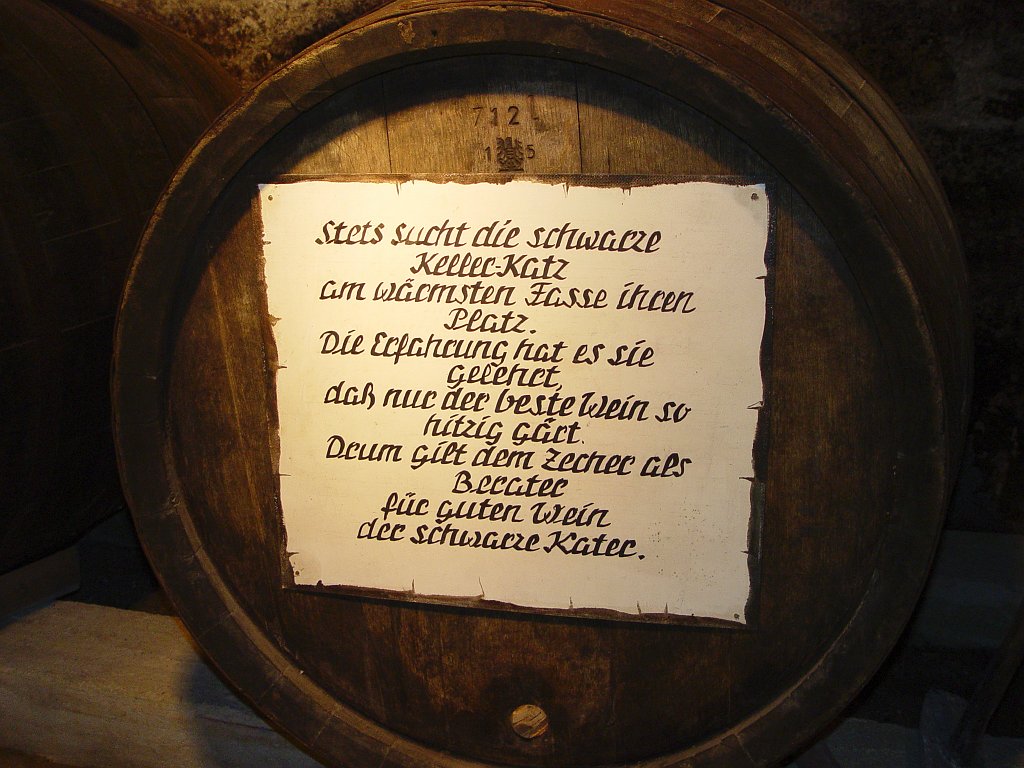 712
1 5
Stets sucht die schwarze
Keller-Katz
am wärmsten Fasse ihren
Platz.
Die Erfahrung hat es sie
gelehrt,
daß nur der beste Wein so
hitzig gärt.
Drum gilt dem Zecher als
Berater
für guten Wein
der schwarze Kater.